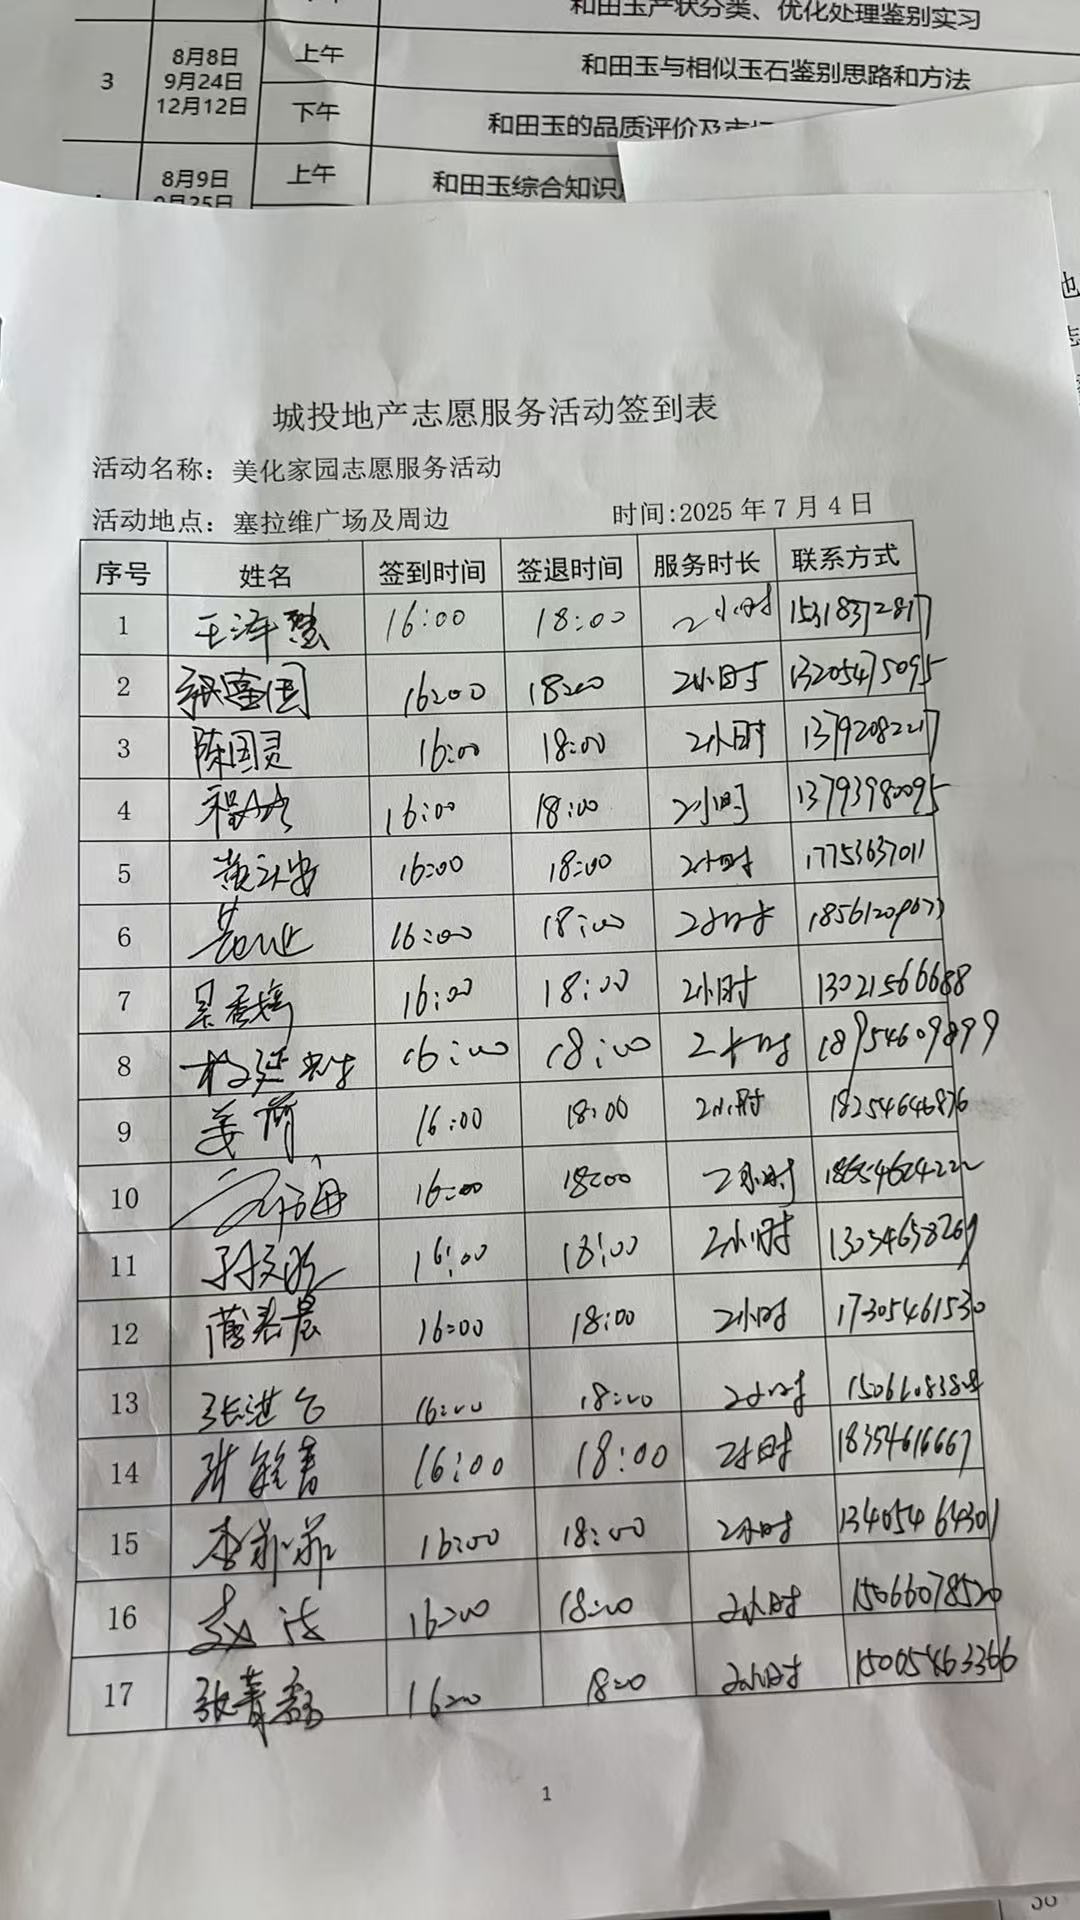 和田玉产状分类、优化处理鉴别实习
3 8月8日 9月24日 12月12日 上午 和田玉与相似玉石鉴别思路和方法
下午 和田玉的品质评价及市场
8月9日 9月25日 上午 和田玉综合知识
城投地产志愿服务活动签到表
活动名称：美化家园志愿服务活动
活动地点：塞拉维广场及周边 时间:2025年7月4日
序号 姓名 签到时间 签退时间 服务时长 联系方式
1 王泽慧 16:00 18:00 2小时 15318372817
2 张富国 16:00 18:00 2小时 13205475095
3 陈国灵 16:00 18:00 2小时 13792082217
4 16:00 18:00 2小时 13793980095
5 黄永安 16:00 18:00 2小时 17753637011
6 16:00 18:00 2小时
7 16:00 18:00 2小时 13021566688
8 16:00 18:00 2小时 18954609899
9 姜荷 16:00 18:00 2小时 18254646876
10 16:00 18:00 2小时 18654624222
11 孙文 16:00 18:00 2小时 13054658269
12 16:00 18:00 2小时 17305461530
13 张洪 16:00 18:00 2小时
14 张敏青 16:00 18:00 2小时 18354616667
15 李菲菲 16:00 18:00 2小时 13405464301
16 赵洁 16:00 18:00 2小时 15066078520
17 张青 16:00 18:00 2小时 15005463366
1